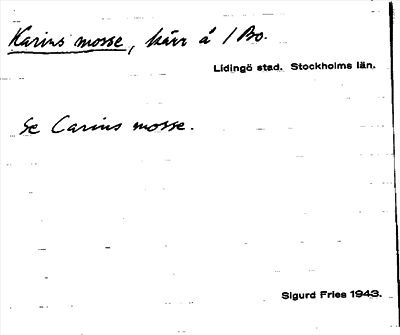 Karins mosse, kärr å 1 Bo.
Lidingö stad. Stockholms län.
Se Carins mosse.
Sigurd Fries 1943.